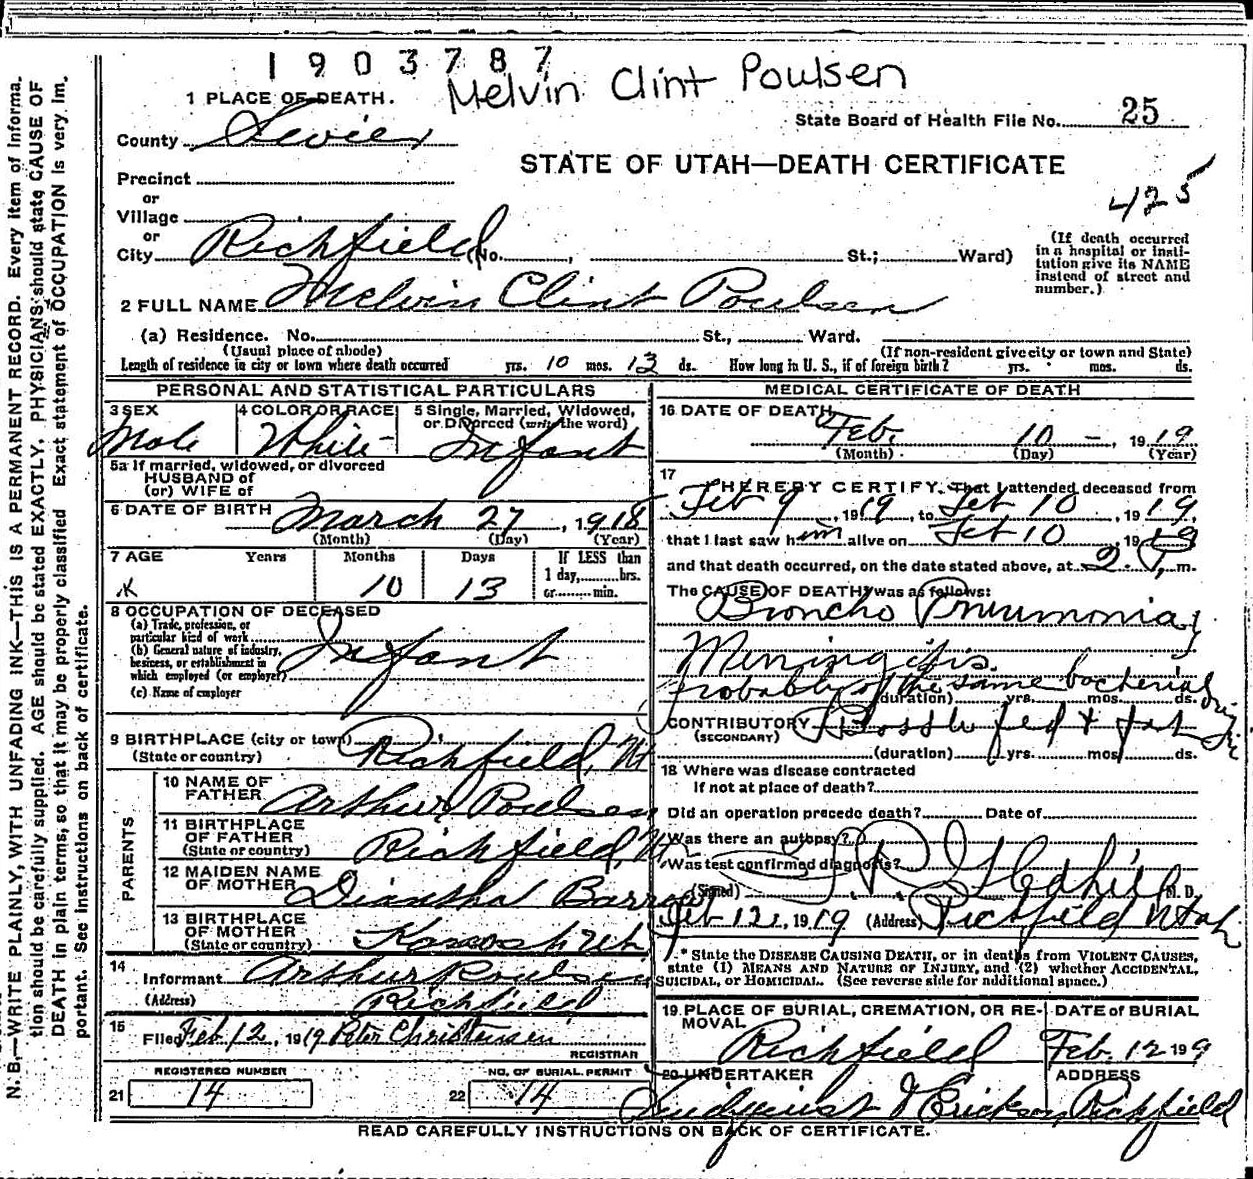 1903787
Melvin Clint Poulsen
1 PLACE OF DEATH.
State Board of Health File No. 25
County Sevier
STATE OF UTAH—DEATH CERTIFICATE
Precinct
425
or
Village
or
City Richfield (No. , St.; Ward)
(If death occurred
in a hospital or insti-
tution give its NAME
instead of street and
number.)
2 FULL NAME Melvin Clint Poulsen
(a) Residence. No. St., Ward.
(Usual place of abode) (If non-resident give city or town and State)
Length of residence in city or town where death occurred yrs. 10 mos. 13 ds. How long in U. S., if of foreign birth? yrs. mos. ds.
PERSONAL AND STATISTICAL PARTICULARS
3 SEX
Male
4 COLOR OR RACE
White
5 Single, Married, Widowed,
or Divorced (write the word)
Infant
5a If married, widowed, or divorced
HUSBAND of
(or) WIFE of
6 DATE OF BIRTH March 27, 1918
(Month) (Day) (Year)
7 AGE Years Months Days If LESS than
1 day, hrs.
or min.
10 13
8 OCCUPATION OF DECEASED
(a) Trade, profession, or
particular kind of work
(b) General nature of industry,
business, or establishment in
which employed (or employer)
Infant
(c) Name of employer
9 BIRTHPLACE (city or town)
(State or country)
Richfield, Ut
PARENTS
10 NAME OF
FATHER
Arthur Poulsen
11 BIRTHPLACE
OF FATHER
(State or country)
Richfield, Ut
12 MAIDEN NAME
OF MOTHER
Diantha
13 BIRTHPLACE
OF MOTHER
(State or country)
Kanosh Utah
14
Informant Arthur Poulsen
(Address) Richfield
15
Filed Feb 12, 1919 Peter Christensen
REGISTRAR
REGISTERED NUMBER
21 14
NO. OF BURIAL PERMIT
22 14
MEDICAL CERTIFICATE OF DEATH
16 DATE OF DEATH
Feb. 10 —, 1919
(Month) (Day) (Year)
17
I HEREBY CERTIFY, That I attended deceased from
Feb 9, 1919, to Feb 10, 1919,
that I last saw him alive on Feb 10, 1919
and that death occurred, on the date stated above, at 2 m.
The CAUSE OF DEATH was as follows:
Broncho Pneumonia,
Miningitis.
probably of the same bacterial origin
(duration) yrs. mos. ds.
CONTRIBUTORY fed & fat
(SECONDARY)
(duration) yrs. mos. ds.
18 Where was disease contracted
If not at place of death?
Did an operation precede death? Date of
Was there an autopsy?
Was test confirmed diagnosis?
(Signed) M. D.
Feb 12, 1919 (Address) Richfield Utah
* State the DISEASE CAUSING DEATH, or in deaths from VIOLENT CAUSES,
state (1) MEANS AND NATURE OF INJURY, and (2) whether ACCIDENTAL,
SUICIDAL, or HOMICIDAL. (See reverse side for additional space.)
19 PLACE OF BURIAL, CREMATION, OR RE-
MOVAL
Richfield
DATE of BURIAL
Feb. 12 199
20 UNDERTAKER
ADDRESS
& Erickson Richfield
READ CAREFULLY INSTRUCTIONS ON BACK OF CERTIFICATE.
N. B.—WRITE PLAINLY, WITH UNFADING INK—THIS IS A PERMANENT RECORD. Every item of informa-
tion should be carefully supplied. AGE should be stated EXACTLY. PHYSICIANS should state CAUSE OF
DEATH in plain terms, so that it may be properly classified Exact statement of OCCUPATION is very im-
portant. See instructions on back of certificate.